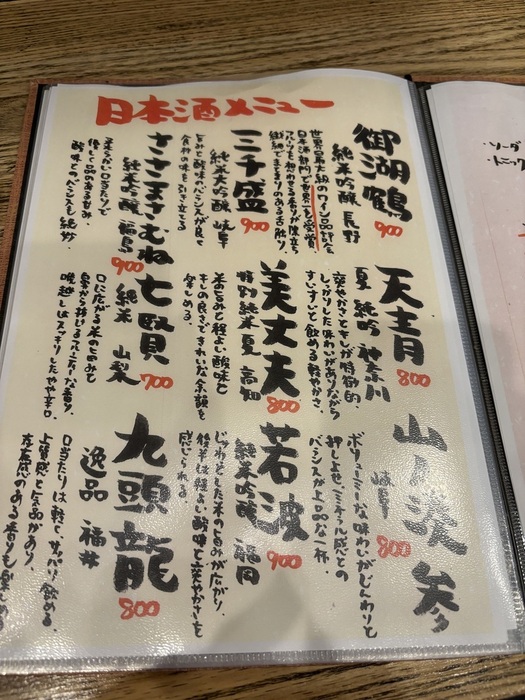 日本酒メニュー
御湖鶴
純米吟醸 長野
900
世界最大級のワイン品評会
日本酒部門で世界一を受賞
三千盛
純米吟醸 岐阜
900
旨みと酸味のバランスが良く
食材の味を引き立てる
ささまさむね
純米吟醸 福島
900
柔らかい口当たりで
優しく品のある甘み。
酸味とのバランスも絶妙。
天青
夏 純吟 神奈川
800
爽やかさとキレが特徴的。
しっかりした味わいがありながら
すいすいと飲める軽やかさ。
美丈夫
特別純米 夏 高知
800
米の旨みと程よい酸味と
キレの良さできれいな余韻を
楽しめる。
七賢
純米 山梨
700
口に広がる米の旨みと
鼻から抜けるフルーティーな香り。
喉越しはスッキリしたやや辛口。
岐阜
800
ボリューミーな味わいがじんわりと
押しよせ、ミネラル感との
バランスが上品な一杯。
若波
純米吟醸 福岡
900
じゅわっとした米の旨みが広がり、
後半は程よい酸味と爽やかさを
感じられる。
九頭龍
逸品 福井
800
口当たりは軽く、サッパリ飲める。
上質感と気品があり、
存在感のある香りも楽しめる
ソーダ